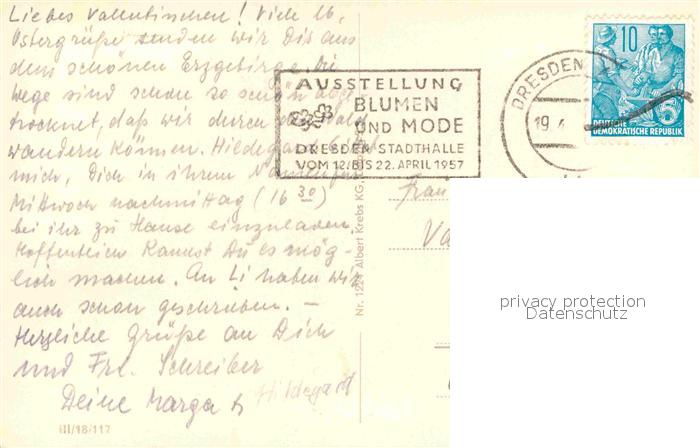 Liebes Valentinchen! Viele lb.
Ostergrüße senden wir Dir aus
dem schönen Erzgebirge. Die
Wege sind schon so schön
trocknet, daß wir durch den Wald
wandern können. Hildegard
mich, Dich in ihrem
Mittwoch nachmittag (16 30)
bei ihr zu Hause einzuladen.
Hoffentlich kannst Du es mög-
lich machen. An Li haben wir
auch schon geschrieben. –
Herzliche Grüße an Dich
und Frl. Schreiber
Deine Marga
Hildegard
III/18/117
AUSSTELLUNG
BLUMEN
UND MODE
DRESDEN STADTHALLE
VOM 12. BIS 22. APRIL 1957
DRESDEN
19.4
10
DEUTSCHE
DEMOKRATISCHE REPUBLIK
Frau
Va
Albert Krebs KG,
privacy protection
Datenschutz